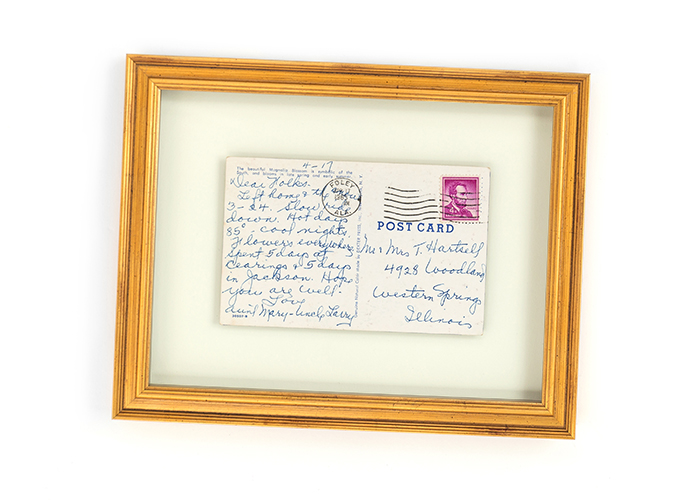 The beautiful Magnolia Blossom is symbolic of the
South, and blooms in late spring and early summer.
4-17
Dear Folks.
Left home &
3-24. Slow
down. Hot days
85° - cool nights.
Flowers everywhere.
Spent 5 days at
Clearings & 5 days
in Jackson. Hope
you are well.
Love
Aunt Mary - Uncle Larry
FOLEY
ALA.
POST CARD
Mr & Mrs T. Hartsell
4928 Woodland
Western Springs
Illinois